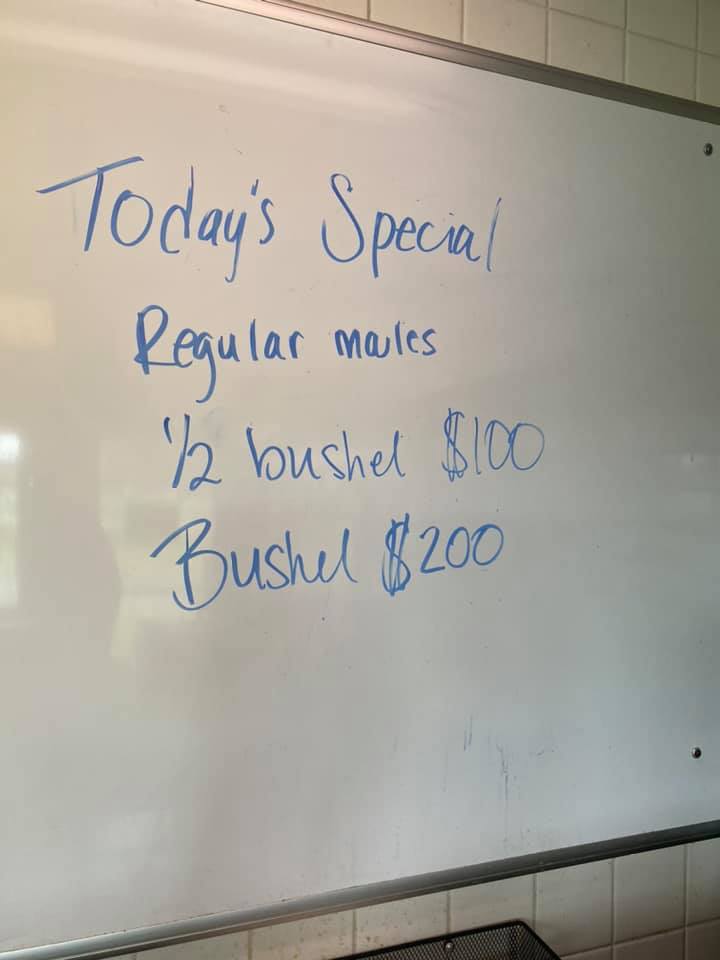 Today's Special
Regular males
1/2 bushel $100
Bushel $200